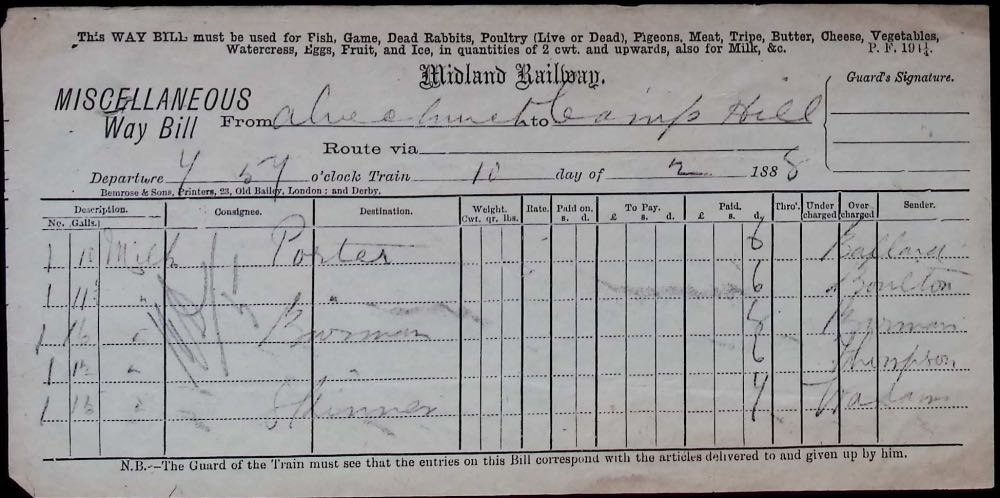 This WAY BILL must be used for Fish, Game, Dead Rabbits, Poultry (Live or Dead), Pigeons, Meat, Tripe, Butter, Cheese, Vegetables,
Watercress, Eggs, Fruit, and Ice, in quantities of 2 cwt. and upwards, also for Milk, &c. P. F. 19
Midland Railway.
Guard's Signature.
MISCELLANEOUS
Way Bill
From Alvechurch to Camp Hill
Route via
Departure 7 57 o'clock Train 10 day of 2 1888
Bemrose & Sons, Printers, 23, Old Bailey, London; and Derby.
Description. Consignee. Destination. Weight. Rate. Paid on. To Pay. Paid. Thro'. Under charged Over charged Sender.
No. Galls. Cwt. qr. lbs. s. d. £ s. d. £ s. d.
1 Milk Porter 6 Ballard
1 11 " " 6 Boulton
1 " Burman Burman
1 " 6 Thompson
1 " Skinner 7
N.B.--The Guard of the Train must see that the entries on this Bill correspond with the articles delivered to and given up by him.